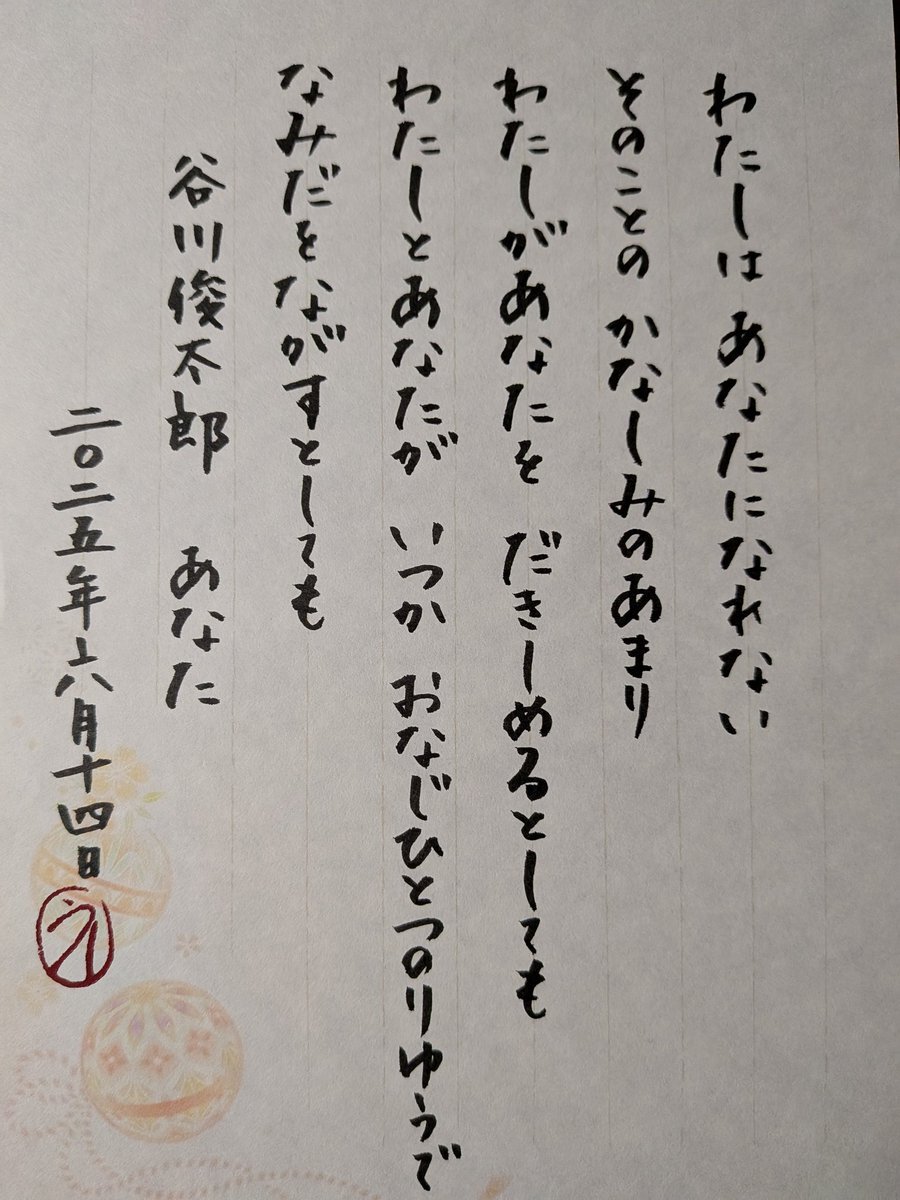 わたしは あなたになれない
そのことの かなしみのあまり
わたしがあなたを だきしめるとしても
わたしとあなたが いつか おなじひとつのりゆうで
なみだをながすとしても
谷川俊太郎 あなた
二〇二五年六月十四日